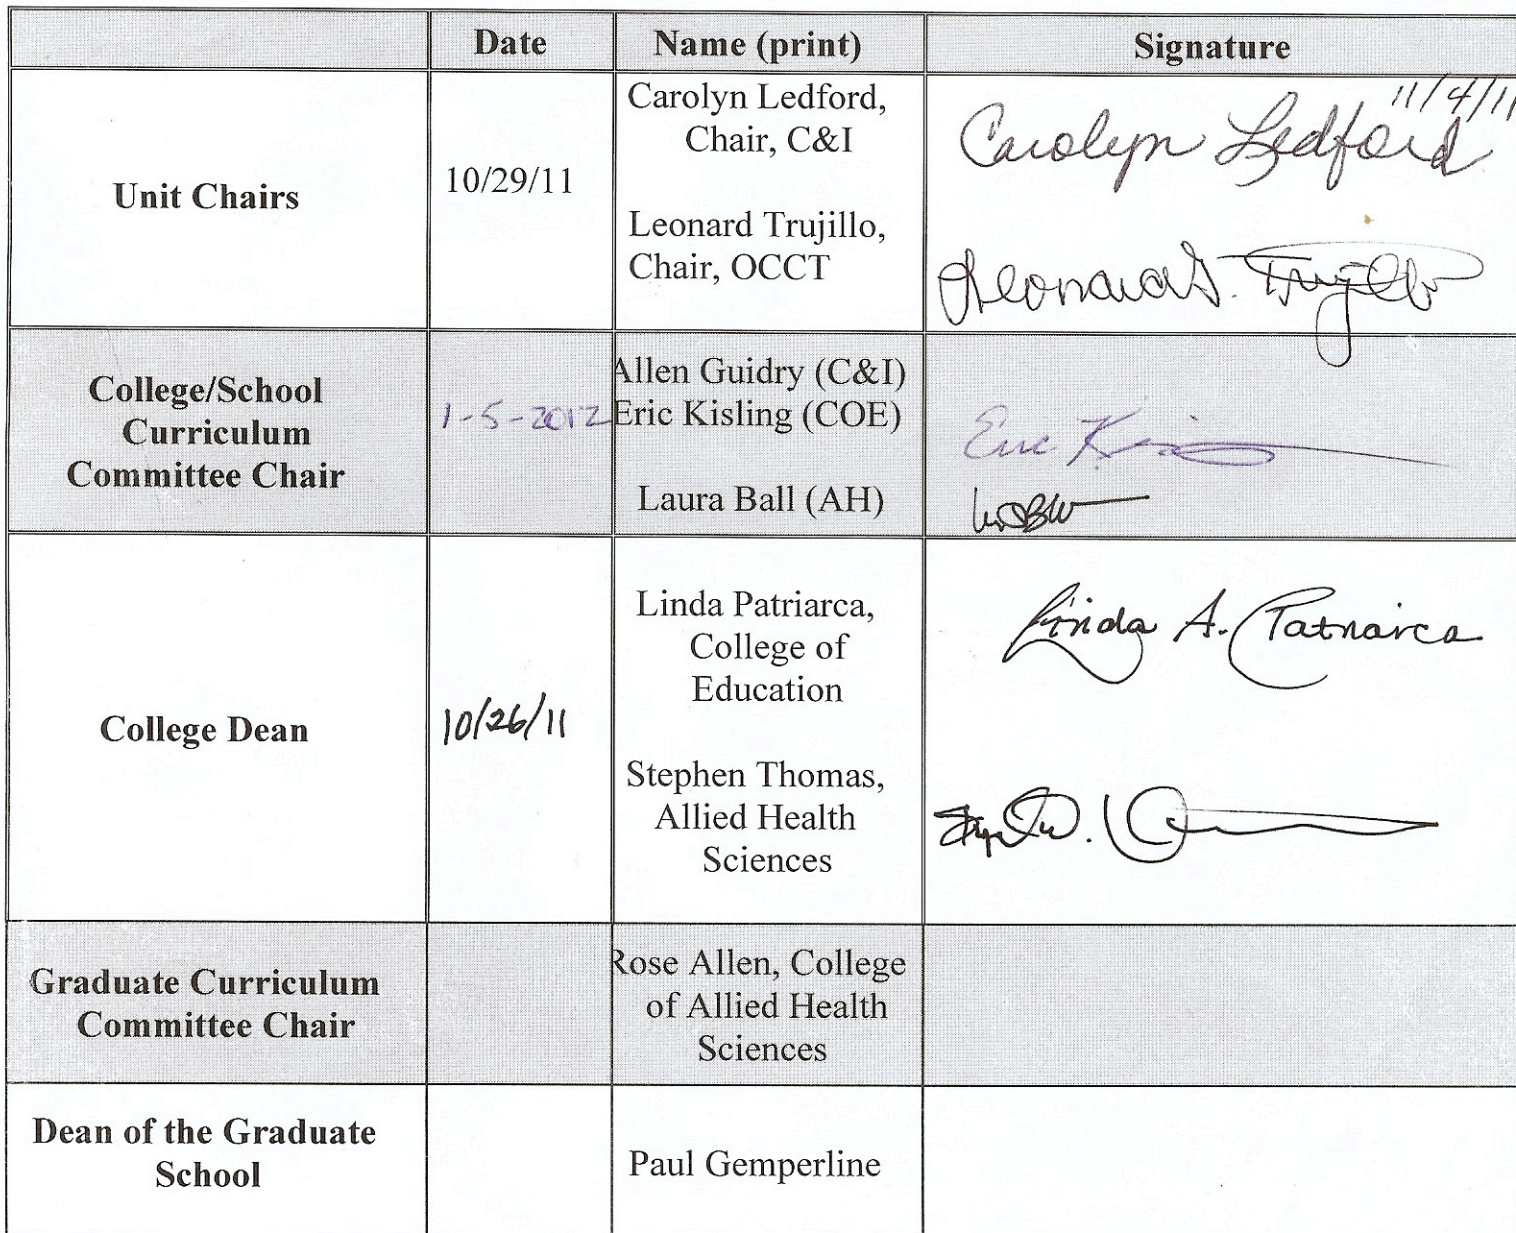 Date Name (print) Signature
Unit Chairs
10/29/11
Carolyn Ledford,
Chair, C&I
Leonard Trujillo,
Chair, OCCT
11/4/11
Carolyn Ledford
Leonard G. Trujillo
College/School
Curriculum
Committee Chair
1-5-2012
Allen Guidry (C&I)
Eric Kisling (COE)
Laura Ball (AH)
Eric
College Dean
10/26/11
Linda Patriarca,
College of
Education
Stephen Thomas,
Allied Health
Sciences
Linda A. Patriarca
Graduate Curriculum
Committee Chair
Rose Allen, College
of Allied Health
Sciences
Dean of the Graduate
School
Paul Gemperline